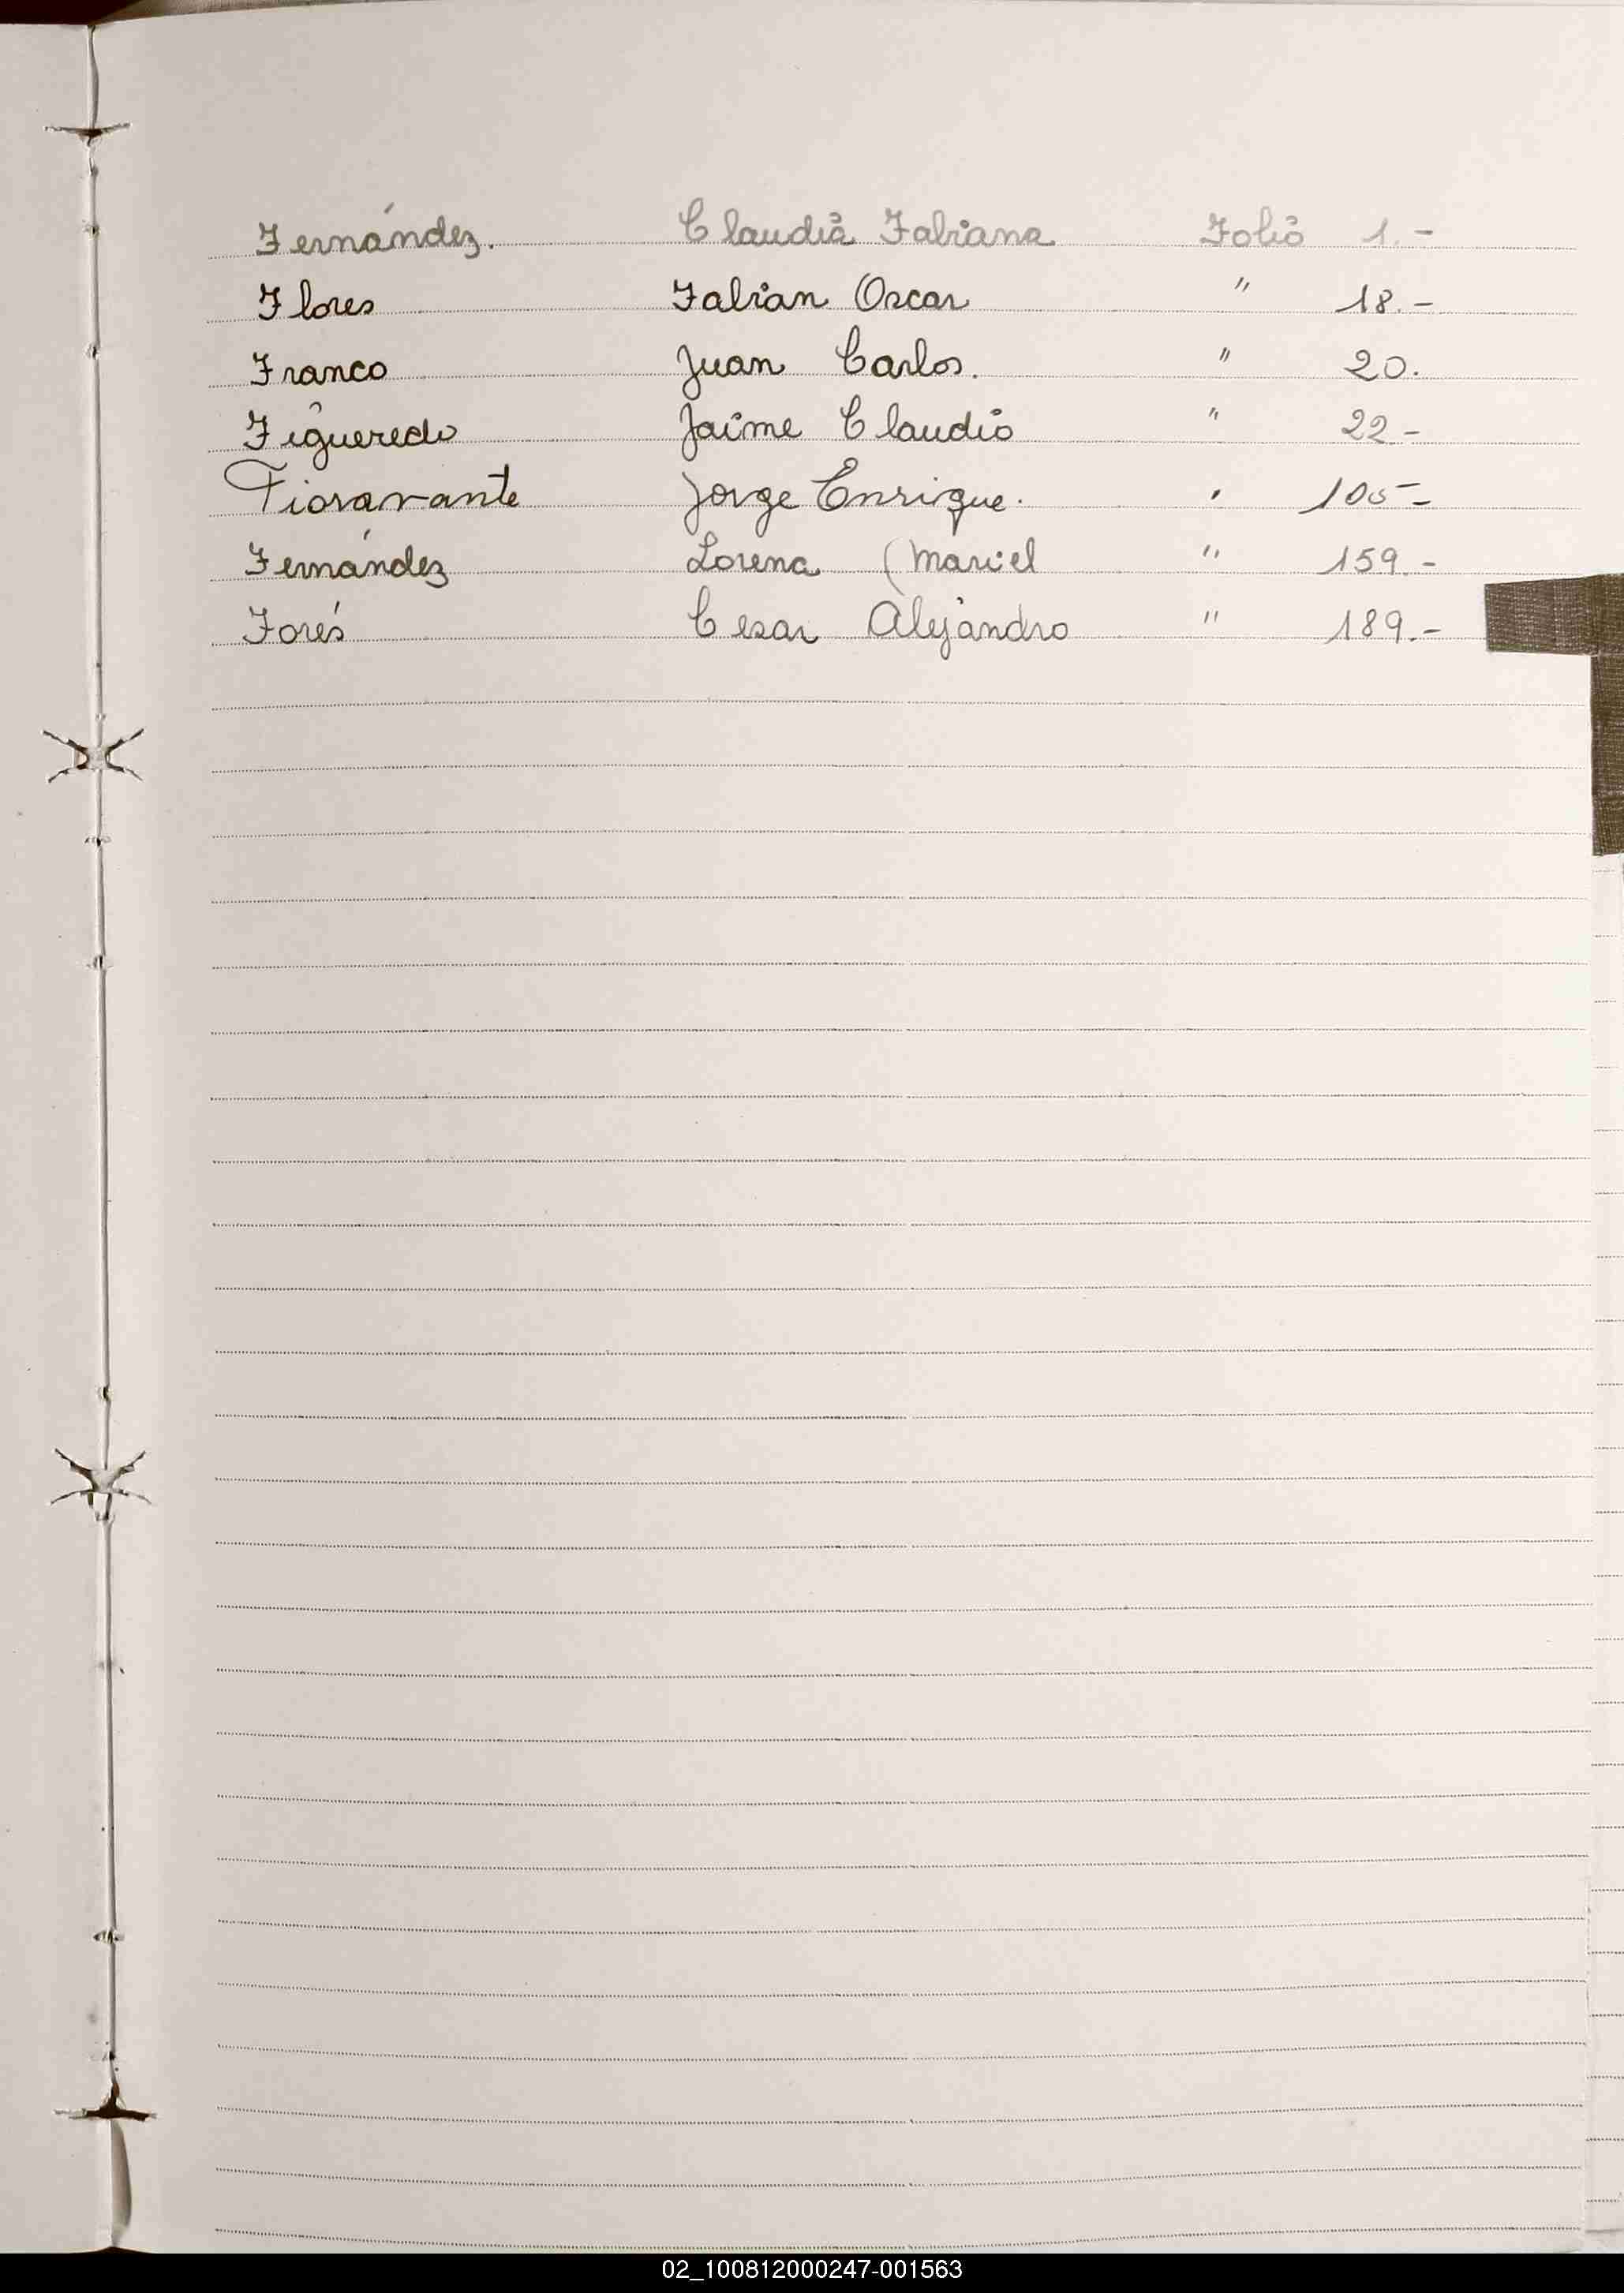 Fernández. Claudia Fabiana Folio 1.-
Flores Fabian Oscar " 18.-
Franco Juan Carlos. " 20.
Figueredo Jaime Claudio " 22-
Fioravante Jorge Enrique. " -
Fernández Lorena Mariel " 159.-
Forés Cesar Alejandro " 189.-
02_100812000247-001563